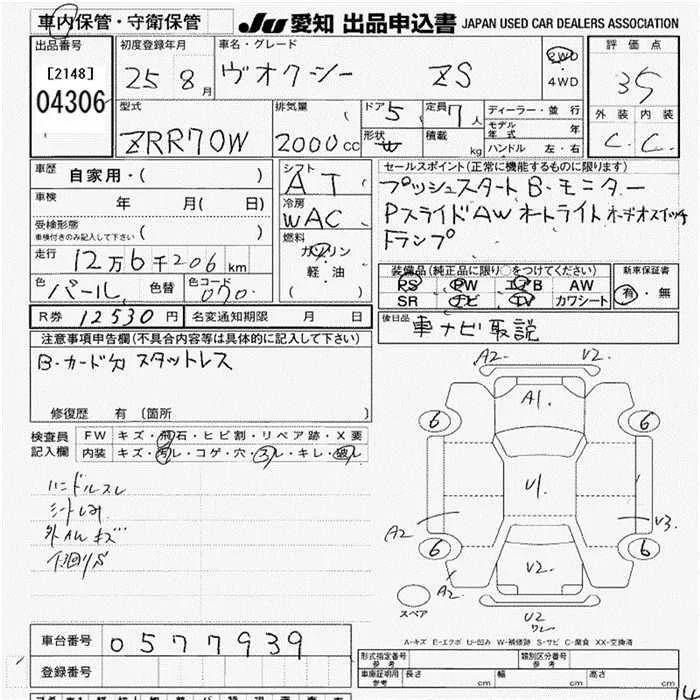 車内保管・守衛保管 JU 愛知 出品申込書 JAPAN USED CAR DEALERS ASSOCIATION
出品番号 初度登録年月 車名・グレード 評価点
[2148] 25 8月 ヴォクシー ZS 2WD 4WD 3.5
04306
型式 排気量 ドア 定員 ディーラー・並行 外装 内装
ZRR70W 2000cc 5 7人 モデル年式 年 C. C.
形状 W 積載 kg ハンドル 左・右
車歴 自家用・( ) シフト AT セールスポイント(正常に機能するものに限ります)
車検 年 月( 日) 冷房 WAC プッシュスタート B・モニター
受検形態 車検付きのみ記入して下さい ( ) 燃料 ガソリン・軽油 ( ) Pスライド AW オートライト
走行 12万6千206km Fランプ
色 パール 色替 色コード 070 装備品(純正品に限り○をつけてください) 新車保証書
PS PW エアB AW 有・無
SR ナビ TV カワシート
R券 12530円 名変通知期限 月 日 後日品 車ナビ取説
注意事項申告欄(不具合内容等は具体的に記入して下さい)
B・カード欠 スタットレス
修復歴 有 〔箇所 〕
検査員記入欄 FW キズ・飛石・ヒビ割・リペア跡・X要
内装 キズ・汚レ・コゲ・穴・スレ・キレ・破レ
ハンドルスレ
シートしみ
外AWキズ
下回りS
A2 V2
A1
6 6
V1
A2 V3
6 6
A2 V2
スペア
V2
ワレ
A-キズ E-エクボ U-凹み W-補修跡 S-サビ C-腐食 XX-交換済
車台番号 0577939
登録番号
形式指定番号 参考 類別区分番号 参考
車庫証明用 参考 長さ cm 幅 cm 高さ cm